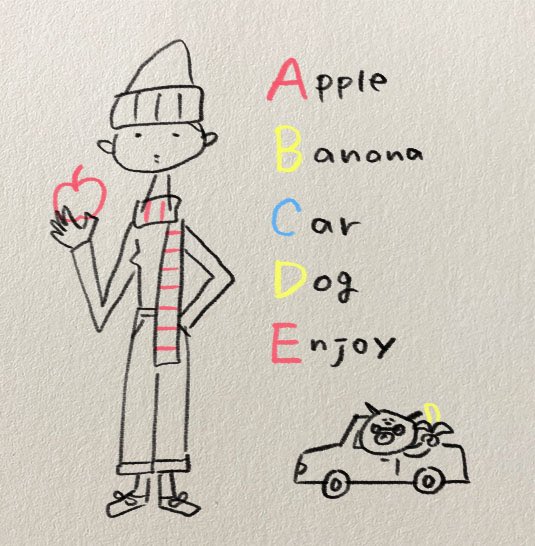 Apple
Banana
Car
Dog
Enjoy